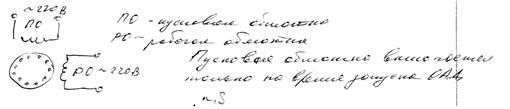 ~220В
ПО
ПО - пусковая обмотка
РО - рабочая обмотка
РО ~220В
Пусковая обмотка включается
только на время запуска ОАД
n, S